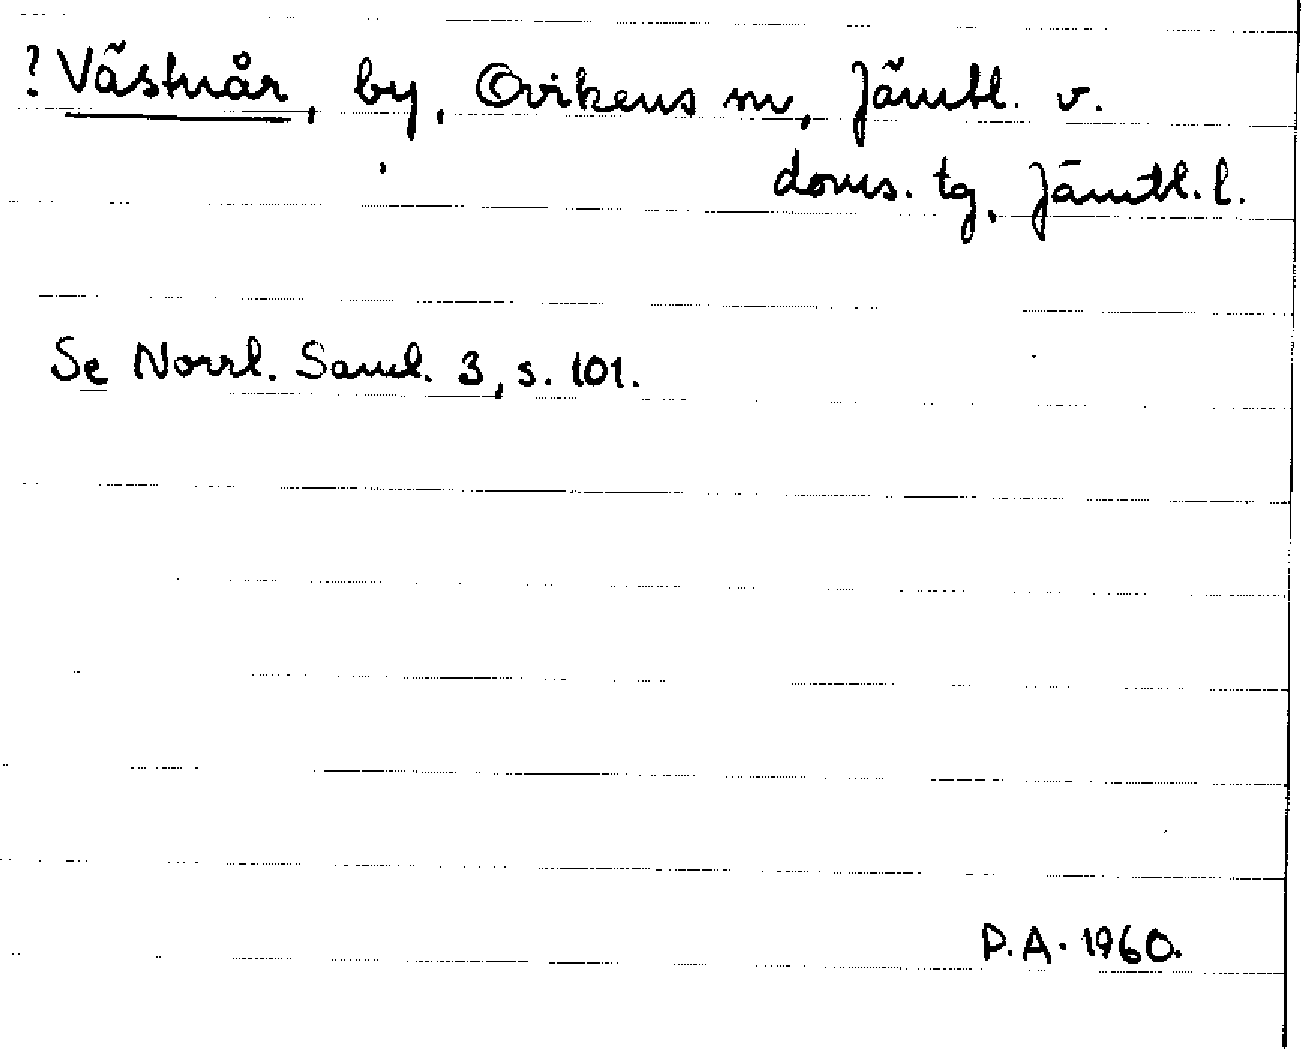 ? Västnår, by, Ovikens sn, Jämtl. v.
doms. tg, Jämtl. l.
Se Norrl. Saml. 3, s. 101.
D.A. 1960.